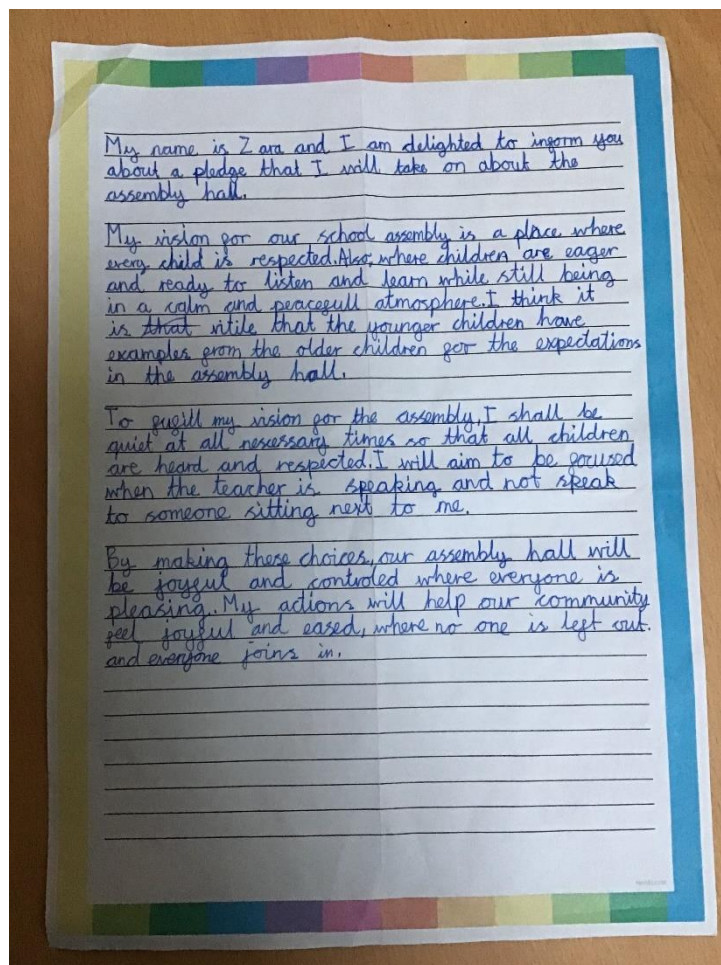 My name is Zara and I am delighted to inform you
about a pledge that I will take on about the
assembly hall.
My vision for our school assembly is a place where
every child is respected. Also, where children are eager
and ready to listen and learn while still being
in a calm and peacefull atmosphere. I think it
is that vitile that the younger children have
examples from the older children for the expectations
in the assembly hall.
To fufill my vision for the assembly, I shall be
quiet at all nescessary times so that all children
are heard and respected. I will aim to be focused
when the teacher is speaking and not speak
to someone sitting next to me.
By making these choices, our assembly hall will
be joyful and controled where everyone is
pleasing. My actions will help our community
feel joyful and eased, where no one is left out.
and everyone joins in.